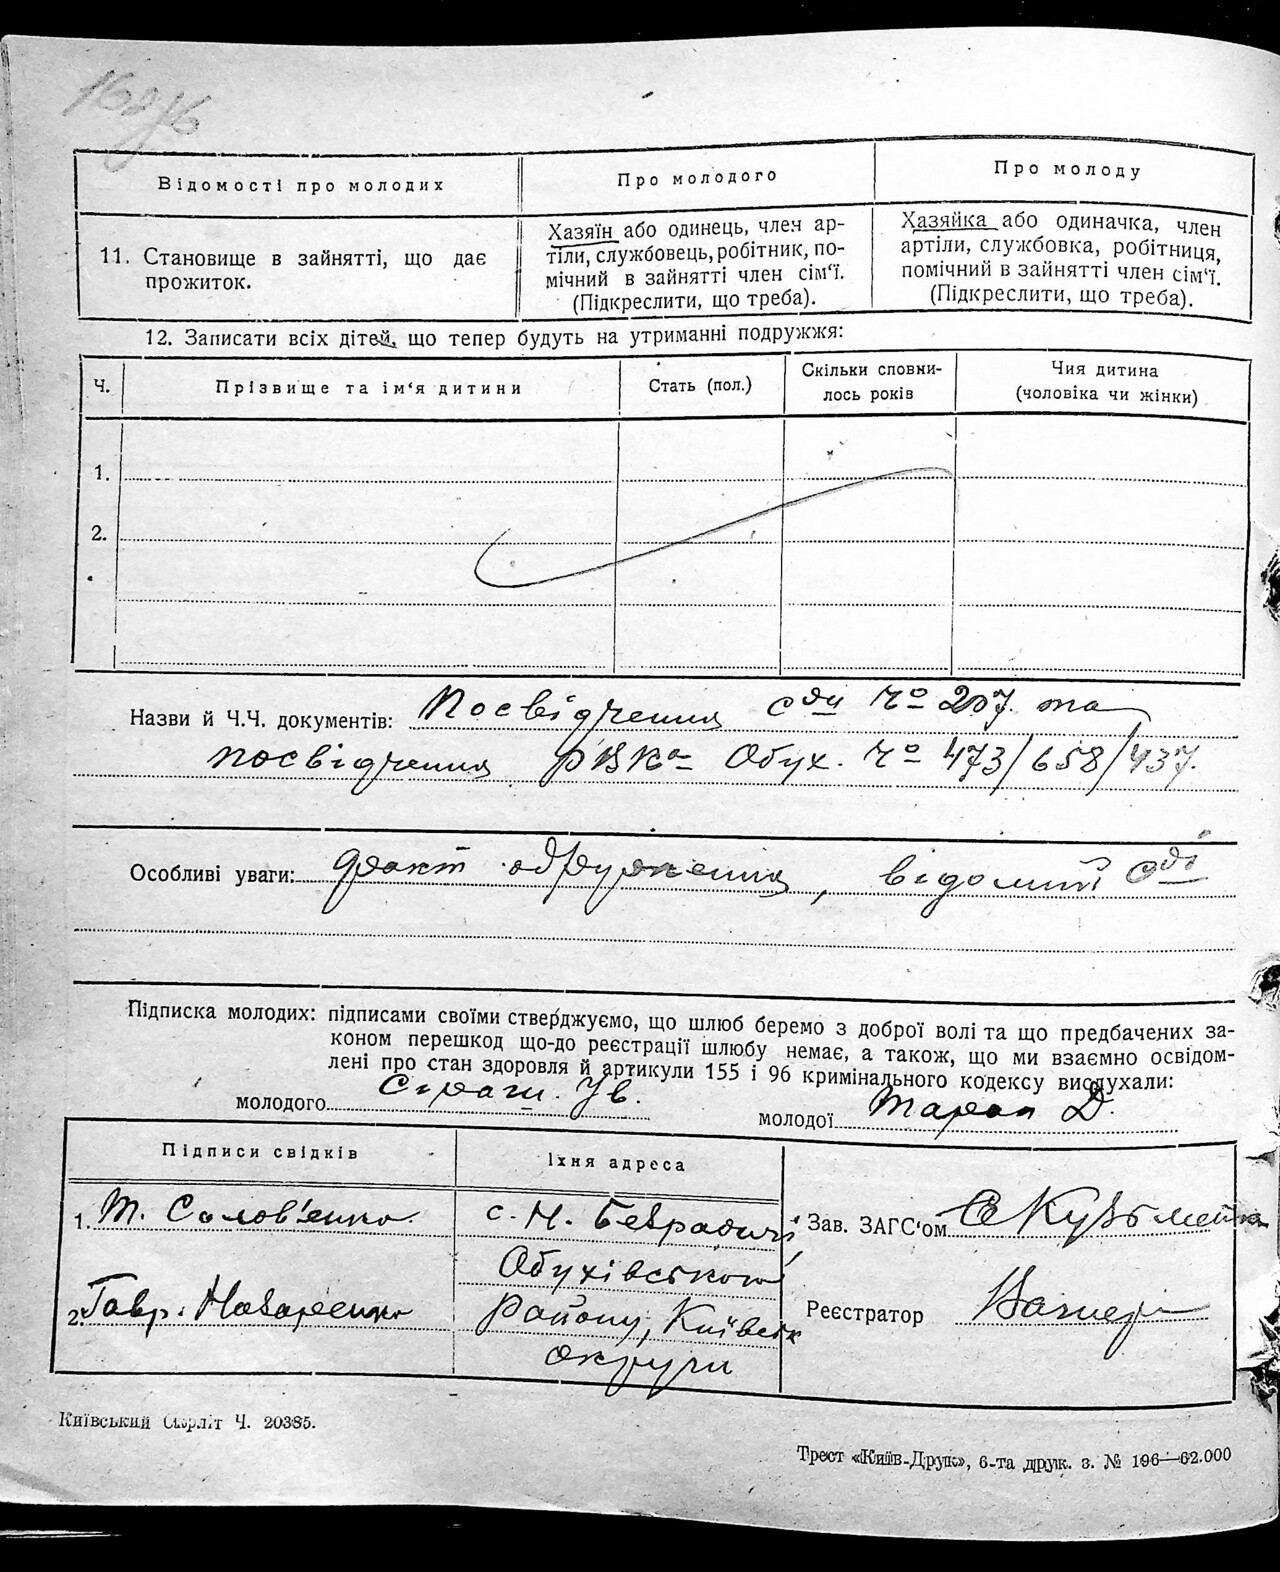 Відомості про молодих
Про молодого
Про молоду
11. Становище в зайнятті, що дає
прожиток.
Хазяїн або одинець, член ар-
тіли, службовець, робітник, по-
мічний в зайнятті член сім'ї.
(Підкреслити, що треба).
Хазяйка або одиначка, член
артіли, службовка, робітниця,
помічний в зайнятті член сім'ї.
(Підкреслити, що треба).
12. Записати всіх дітей, що тепер будуть на утриманні подружжя:
Ч.
Прізвище та ім'я дитини
Стать (пол.)
Скільки сповни-
лось років
Чия дитина
(чоловіка чи жінки)
1.
2.
Назви й Ч.Ч. документів: Посвідчення Чо 207. та
посвідчення РВКа Обух. Чо 473/658/437.
Особливі уваги: факт одруження, відомий
Підписка молодих: підписами своїми стверджуємо, що шлюб беремо з доброї волі та що предбачених за-
коном перешкод що-до реєстрації шлюбу немає, а також, що ми взаємно освідом-
лені про стан здоровля й артикули 155 і 96 кримінального кодексу вислухали:
молодого Ів.
молодої Таран Д.
Підписи свідків
Їхня адреса
1. Т. Солов'енко.
с. Н. Безрадичі,
Обухівського
2. Гавр. Назаренко
Району, Київськ
округи
Зав. ЗАГС'ом Кузьменко
Реєстратор
Київський Окрліт Ч. 20385.
Трест «Київ-Друк», 6-та друк. з. № 196—62.000